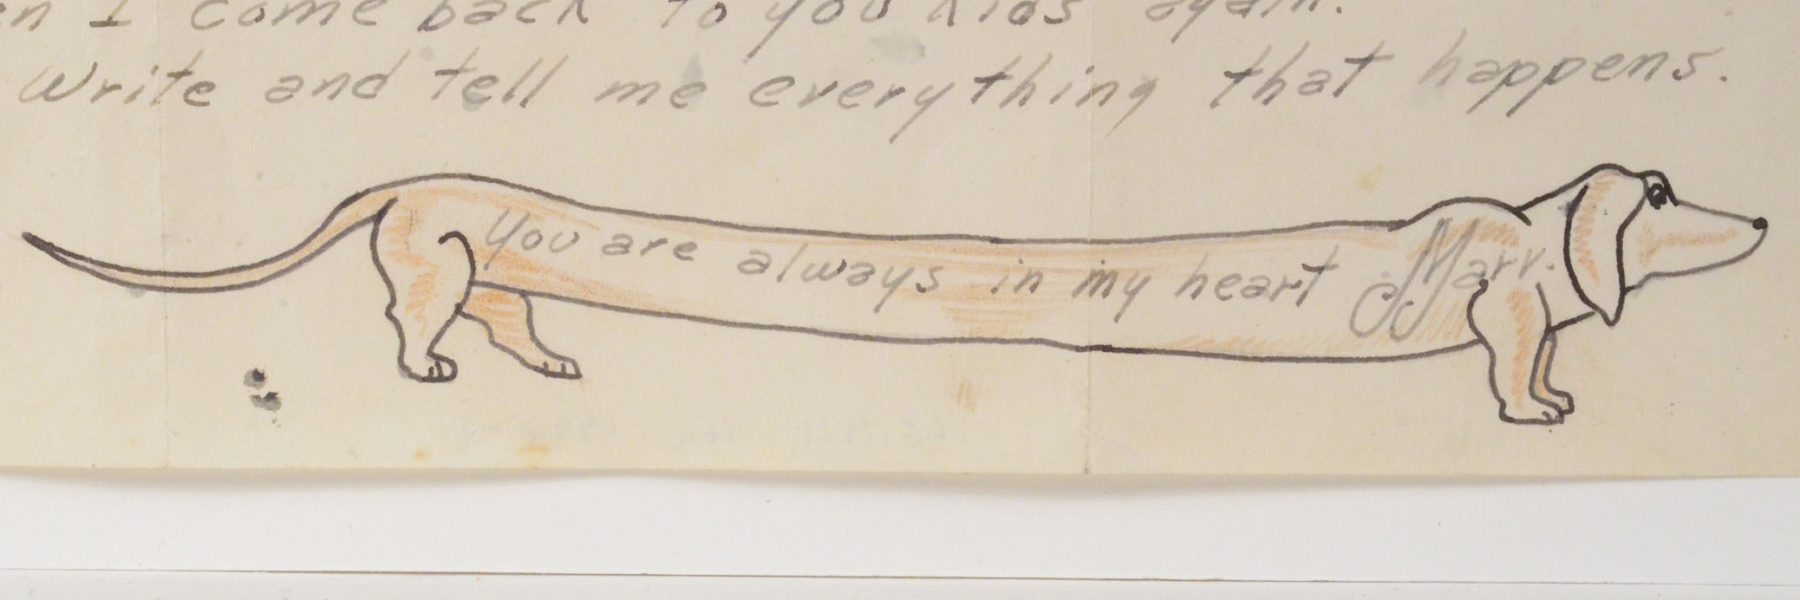 en I come back to you kids again.
Write and tell me everything that happens.
You are always in my heart Marv.